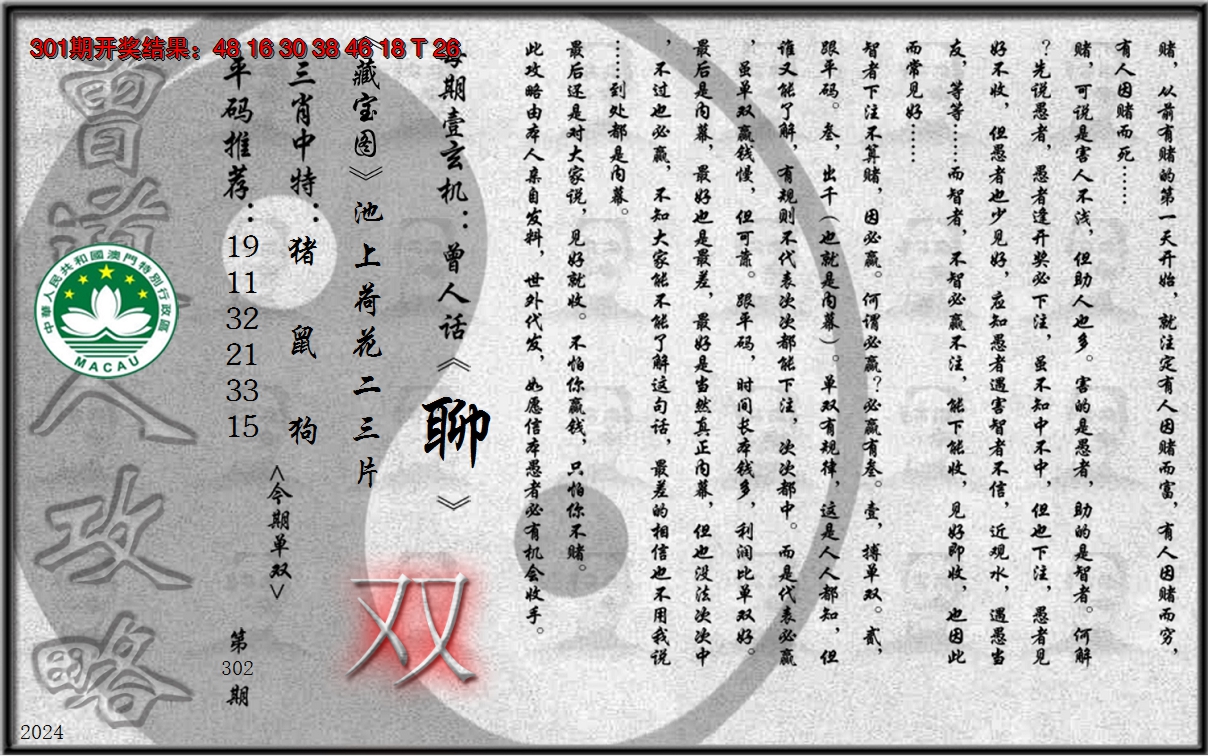 301期开奖结果：48 16 30 38 46 18 T 26
赌，从前有赌的第一天开始，就注定有人因赌而富，有人因赌而穷，
有人因赌而死……
赌，可说是害人不浅，但助人也多。害的是愚者，助的是智者。何解
？先说愚者，愚者逢开奖必下注，虽不知中不中，但也下注，愚者见
好不收，但愚者也少见好，应知愚者遇害智者不信，近观水，遇愚当
友，等等……而智者，不智必赢不注，能下能收，见好即收，也因此
而常见好……
智者下注不算赌，因必赢。何谓必赢？必赢有叁。壹，搏单双。贰，
跟平码。叁，出千（也就是内幕）。单双有规律，这是人人都知，但
谁又能了解，有规则不代表次次都能下注，次次都中。而是代表必赢
，虽单双赢钱慢，但可靠。跟平码，时间长本钱多，利润比单双好。
最后是内幕，最好也是最差，最好是当然真正内幕，但也没法次次中
，不过也必赢，不知大家能不能了解这句话，最差的相信也不用我说
……到处都是内幕。
最后还是对大家说，见好就收。不怕你赢钱，只怕你不赌。
此攻略由本人亲自发料，世外代发，如愿信本愚者必有机会收手。
每期壹玄机：曾人话《聊》
《藏宝图》池上荷花二三片
双
三肖中特：猪 鼠 狗
<今期单双>
平码推荐：19 11 32 21 33 15
第302期
曾道人攻略
中華人民共和國澳門特別行政區
MACAU
2024